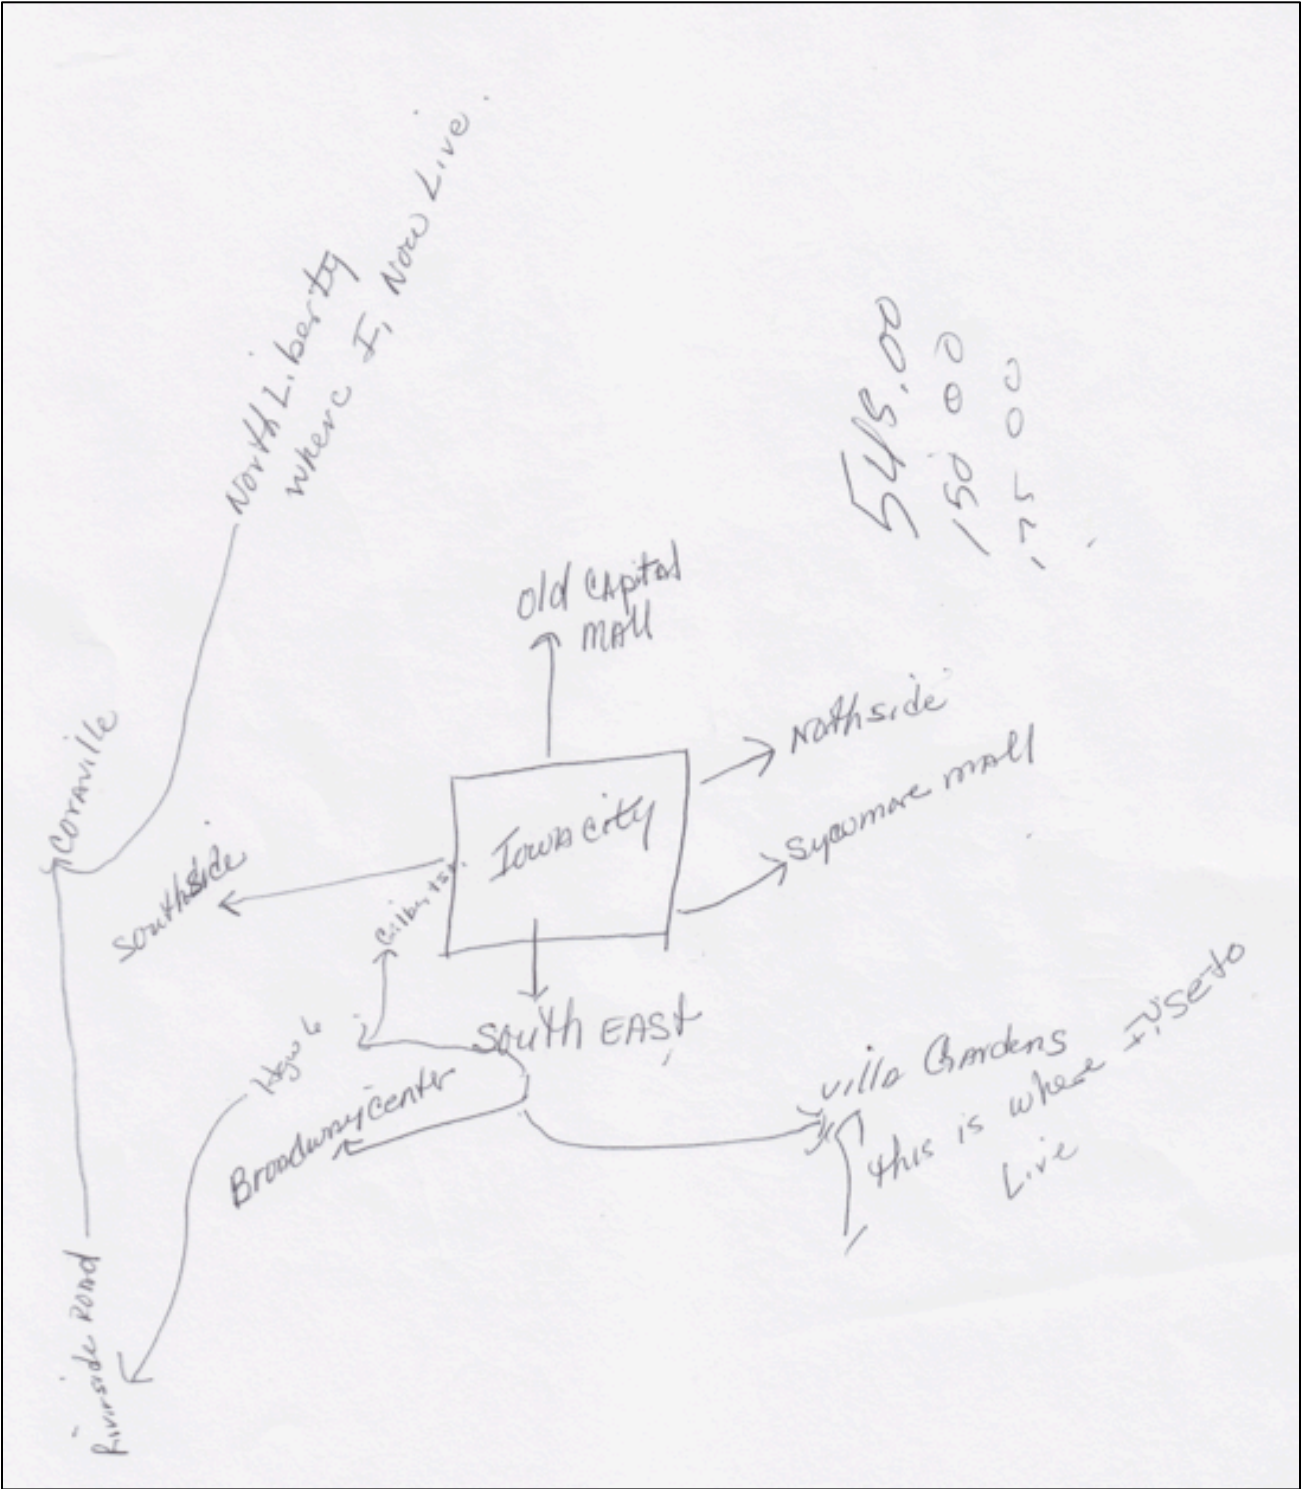 North Liberty
where I, Now Live.
545.00
150 00
75 00
Old Capital
MAll
Nothside
Sycomore mAll
Iowa city
CorAville
Southside
Gilbert st.
South EAST
Hgw 6
Broadway center
Villa Gardens
this is where I, Use to
Live
Riverside Road